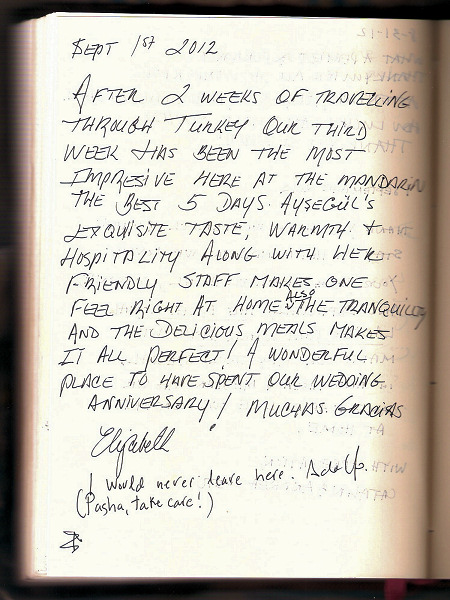 Sept 1st 2012
AFTER 2 WEEKS OF TRAVELLING
THROUGH TURKEY OUR THIRD
WEEK HAS BEEN THE MOST
IMPRESIVE HERE AT THE MANDARIN
THE BEST 5 DAYS. AYSEGÜL'S
EXQUISITE TASTE, WARMTH +
HOSPITALITY ALONG WITH HER
FRIENDLY STAFF MAKES ONE
FEEL RIGHT AT HOME ALSO THE TRANQUILITY
AND THE DELICIOUS MEALS MAKES
IT ALL PERFECT! A WONDERFUL
PLACE TO HAVE SPENT OUR WEDDING
ANNIVERSARY! MUCHAS GRACIAS
Elizabeth
I would never leave here. Adolfo.
(Pasha, take care!)